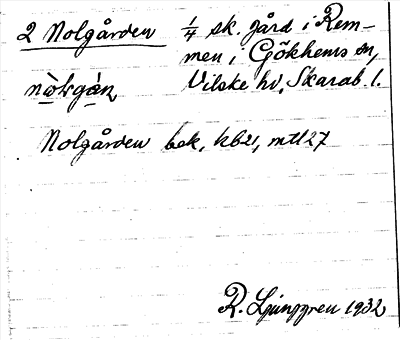 2 Nolgården 1/4 sk. gård i Rem-
men i Gökhems sn,
nòlgàn Vilske hd, Skarab. l.
Nolgården bek, kb21, mtl27
R. Ljunggren 1932